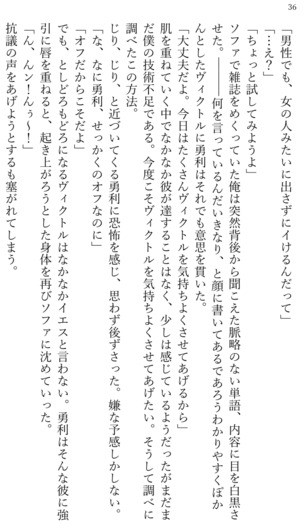 36
「男性でも、女の人みたいに出さずにイけるんだって」
「…え？」
「ちょっと試してみようよ」
ソファで雑誌をめくっていた俺は突然背後から聞こえた脈略のない単語、内容に目を白黒さ
せた。――何を言っているんだいきなり、と顔に書いてあるであろうわかりやすくぽか
んとしたヴィクトルに勇利はそれでも意思を貫いた。
「大丈夫だよ。今日はたくさんヴィクトルを気持ちよくさせてあげるから」
肌を重ねていく中でなかなか彼が達することはなく、少しは感じているようだったがまだま
だ僕の技術不足である。今度こそヴィクトルを気持ちよくさせてあげたい。そうして調べに
調べたこの方法。
じり、じり、と近づいてくる勇利に恐怖を感じ、思わず後ずさった。嫌な予感しかしない。
「な、なに勇利、せっかくのオフなのに」
「オフだからこそだよ」
でも、としどろもどろになるヴィクトルはなかなかイエスと言わない。勇利はそんな彼に強
引に唇を重ねると、起き上がろうとした身体を再びソファに沈めていった。
「ん、んン！んぅ〜！」
抗議の声をあげようとするも塞がれてしまう。